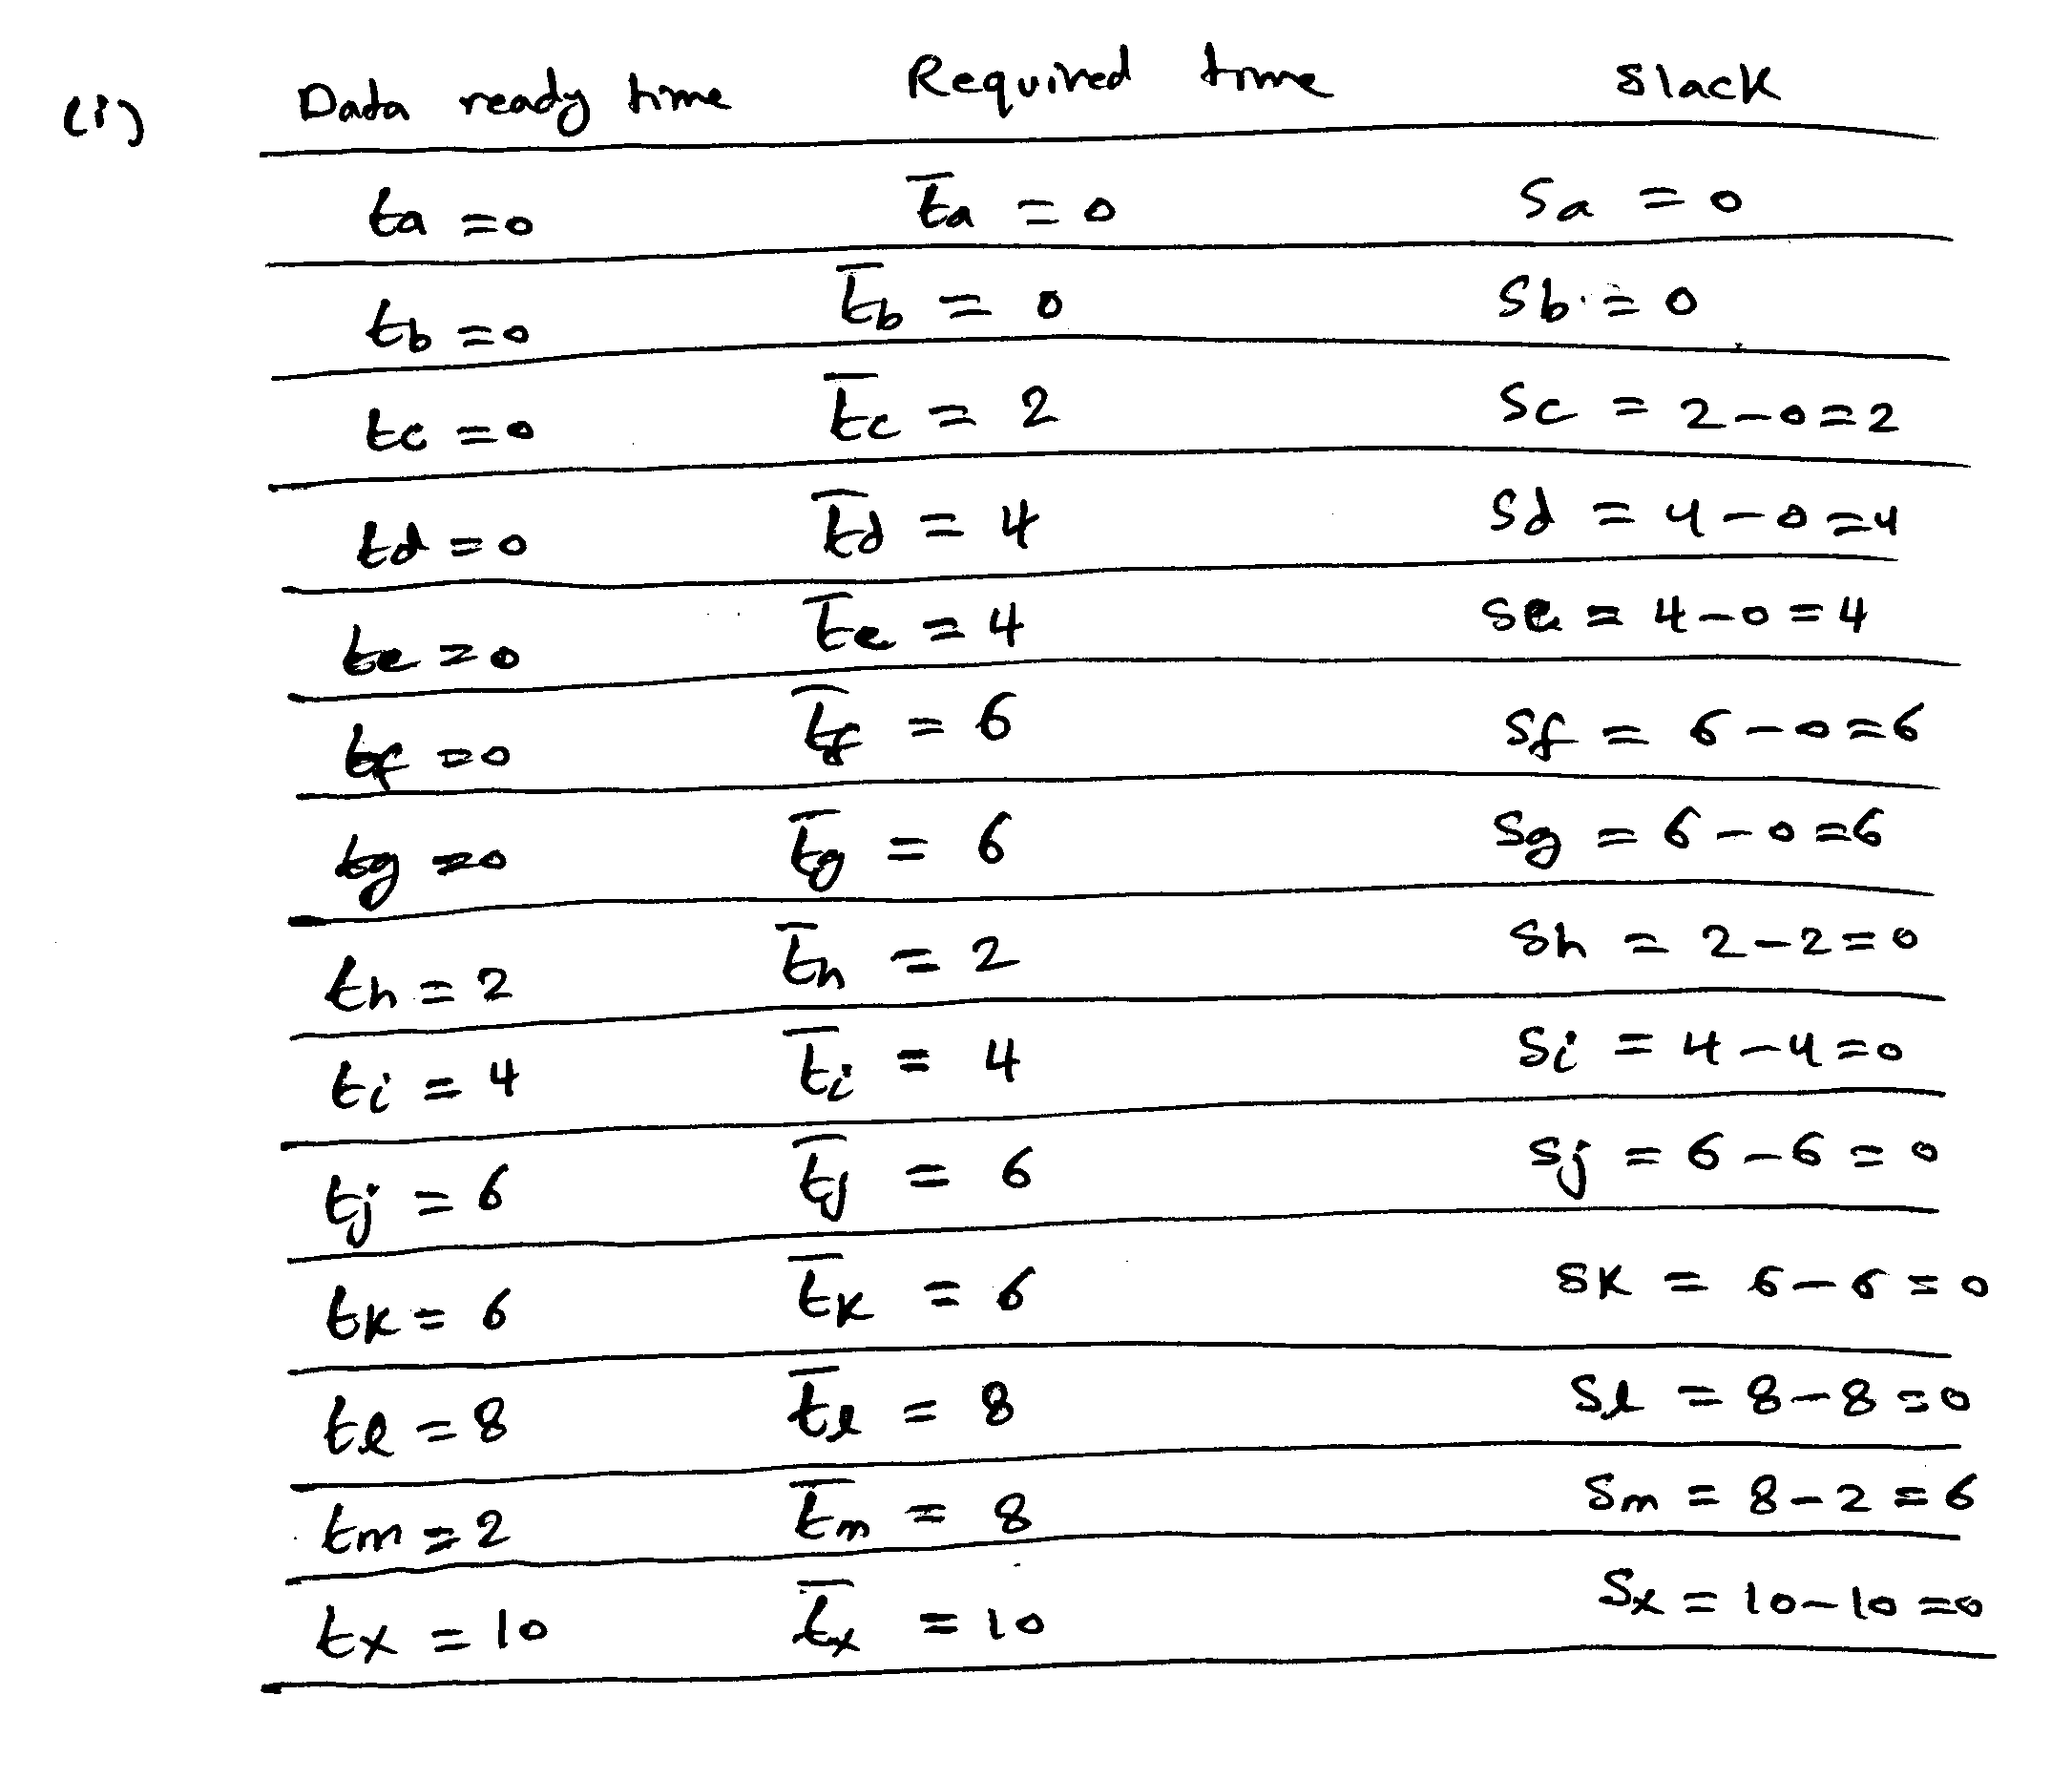 (i) Data ready time Required time Slack
ta = 0 t̅a = 0 Sa = 0
tb = 0 t̅b = 0 Sb = 0
tc = 0 t̅c = 2 Sc = 2 - 0 = 2
td = 0 t̅d = 4 Sd = 4 - 0 = 4
te = 0 t̅e = 4 Se = 4 - 0 = 4
tf = 0 t̅f = 6 Sf = 6 - 0 = 6
tg = 0 t̅g = 6 Sg = 6 - 0 = 6
th = 2 t̅h = 2 Sh = 2 - 2 = 0
ti = 4 t̅i = 4 Si = 4 - 4 = 0
tj = 6 t̅j = 6 Sj = 6 - 6 = 0
tk = 6 t̅k = 6 Sk = 6 - 6 = 0
tl = 8 t̅l = 8 Sl = 8 - 8 = 0
tm = 2 t̅m = 8 Sm = 8 - 2 = 6
tx = 10 t̅x = 10 Sx = 10 - 10 = 0